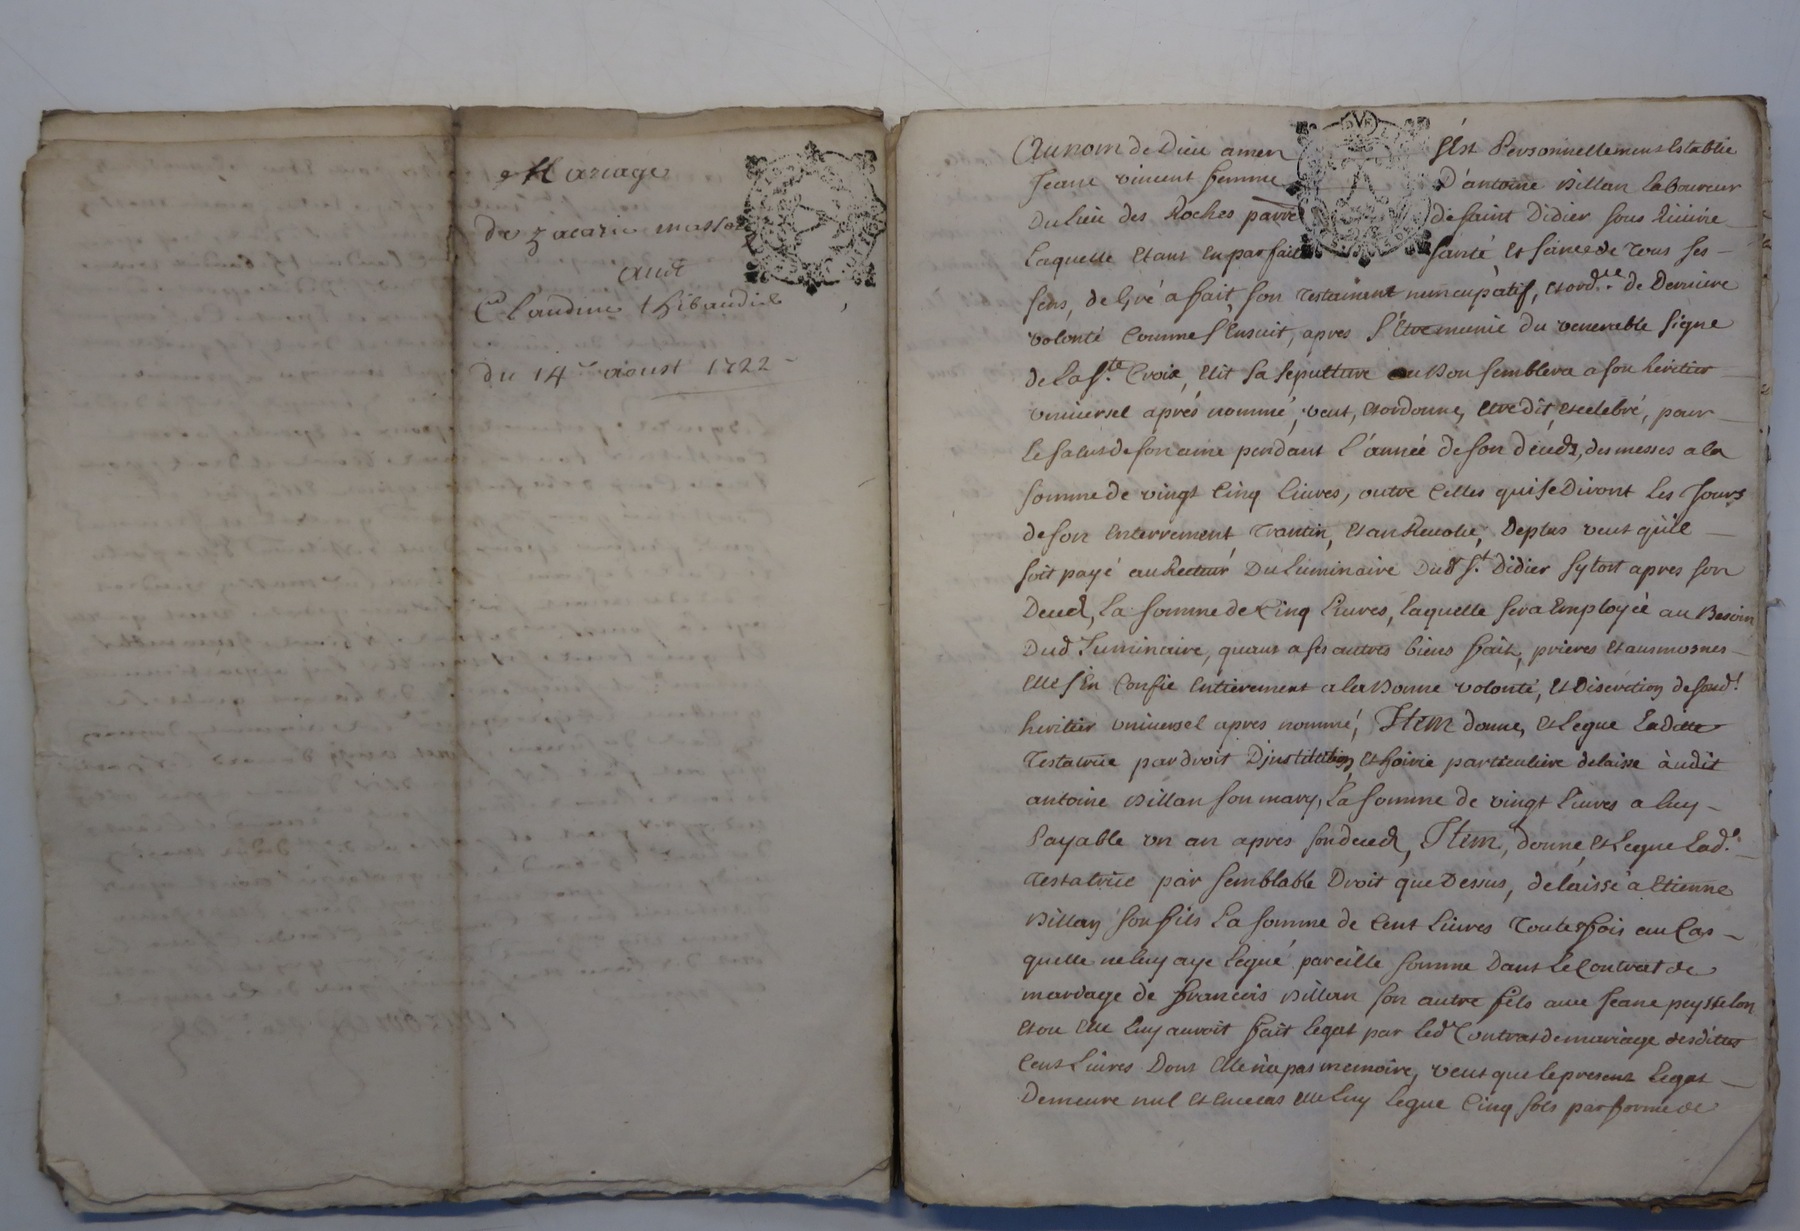 Mariage
de zacarie masson
avec
Claudine thibaudier
du 14e aoust 1722
Au nom de Dieu amen s'Est Personnellement Establie
Jeane vincent femme D'antoine Billan Laboureur
Du Lieu des Roches parre de saint Didier sous Riuirie
Laquelle Etant En parfaite santé Et sance de Tous ses
sens, de Gré a fait son Testament nuncupâtif, et ordre de Derniere
volonté Comme s'Ensuit, apres s'Etre munie du venerable signe
de La Ste Croix, Elit sa sepulture ou Bon semblera a son héritier
vniuersel aprés nommé, veut, Et ordonne, Etre dit, et celebré, pour
Le salut de son ame pendant L'année de son déceds, des messes a la
somme de vingt Cinq Liures, outre Celles qui se Diront Les Jours
de son Enterrement, Trantin, Et an Reuolu, Deplus veut quîl
soit payé au Recteur Du Luminaire Dud St Didier sytost apres son
Deced, La somme de Cinq Liures, Laquelle sera Employée au Besoin
Dud Luminaire, quant a ses autres biens fait, prieres Et aumosnes
Elle s'En Confie Entierement a la Bonne volonté, Et Discretion de sond
heritier vniuersel apres nommé, Item donne, Et Legue Ladette
Testatrice par droit D'jnstitution, Et hoirie particuliere delaisse àudit
antoine Billan son mary, La somme de vingt Liures a Luy
Payable vn an apres son deced, Item, donne, Et Legue Lade
Testatrice par semblable Droit que Dessus, délaisse a Etienne
Billan son fils La somme de Cent Liures Toutesfois au Cas
quelle ne Luy aye Legué pareille somme Dans Le Contrat de
mariage de francois Billan son autre fils auec Jeane peysselon
Et ou Elle Luy auroit fait Legat par Led Contrat de mariage desdittes
Cent Liures Dont Elle n'a pas memoire, veut que le present Legat
Demeure nul Et en ce cas Elle Luy Legue Cinq sols par forme de